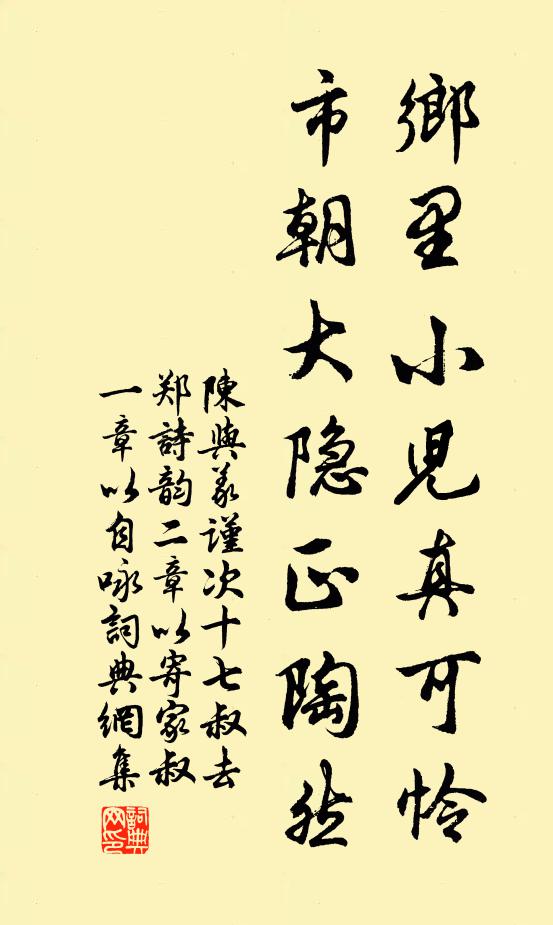 鄉里小兒真可怜
市朝大隐正陶然
陳與義謹次十七叔去
郑詩韵二章以寄家叔
一章以自咏詞典網集
詞典
网印